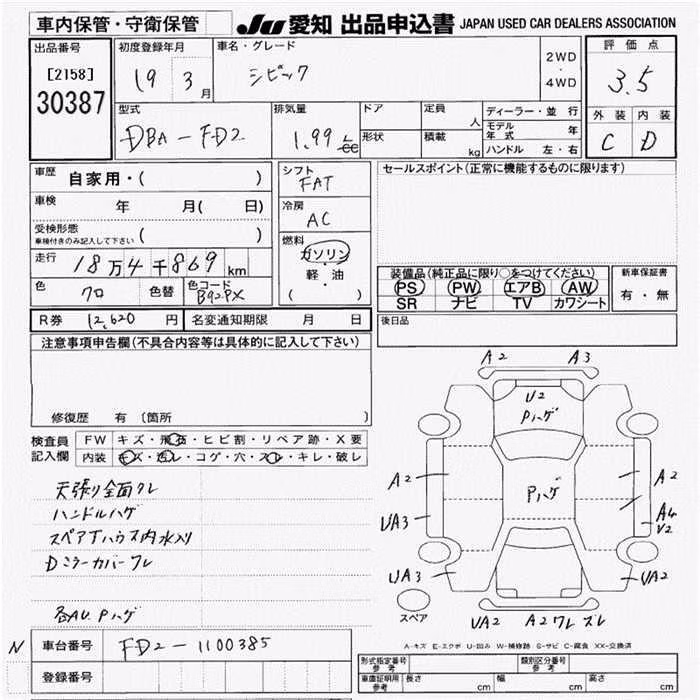 車内保管・守衛保管
JU 愛知 出品申込書 JAPAN USED CAR DEALERS ASSOCIATION
出品番号
[2158]
30387
初度登録年月
19 3月
車名・グレード
シビック
2WD
・
4WD
評価点
3.5
外装 内装
C D
型式
DBA-FD2
排気量
1.99 L cc
ドア
形状
定員
人
積載
kg
ディーラー・並行
モデル年式 年
ハンドル 左・右
車歴
自家用・( )
車検
年 月( 日)
受検形態
車検付きのみ記入して下さい ( )
走行
18万4千869km
色
クロ
色替
色コード
B92PX
シフト
FAT
冷房
AC
燃料
ガソリン
・
軽・油
( )
セールスポイント(正常に機能するものに限ります)
装備品(純正品に限り○をつけてください)
PS PW エアB AW
SR ナビ TV カワシート
新車保証書
有・無
R券 12,620 円
名変通知期限 月 日
後日品
注意事項申告欄(不具合内容等は具体的に記入して下さい)
修復歴 有 〔箇所 〕
検査員
記入欄
FW キズ・飛石・ヒビ割・リペア跡・X要
内装 キズ・汚レ・コゲ・穴・スレ・キレ・破レ
天張り全面クレ
ハンドルハゲ
スペアTハウス内水入り
Dミラーカバーワレ
各AU.Pハゲ
A2 A3
U2
Pハゲ
A2
Pハゲ
A2
UA3
A4
V2
UA3
UA2
スペア
UA2 A2ワレズレ
A-キズ E-エクボ U-凹み W-補修跡 S-サビ C-腐食 XX-交換済
N
車台番号
FD2-1100385
登録番号
形式指定番号
参考
類別区分番号
参考
車庫証明用
参考
長さ cm
幅 cm
高さ cm